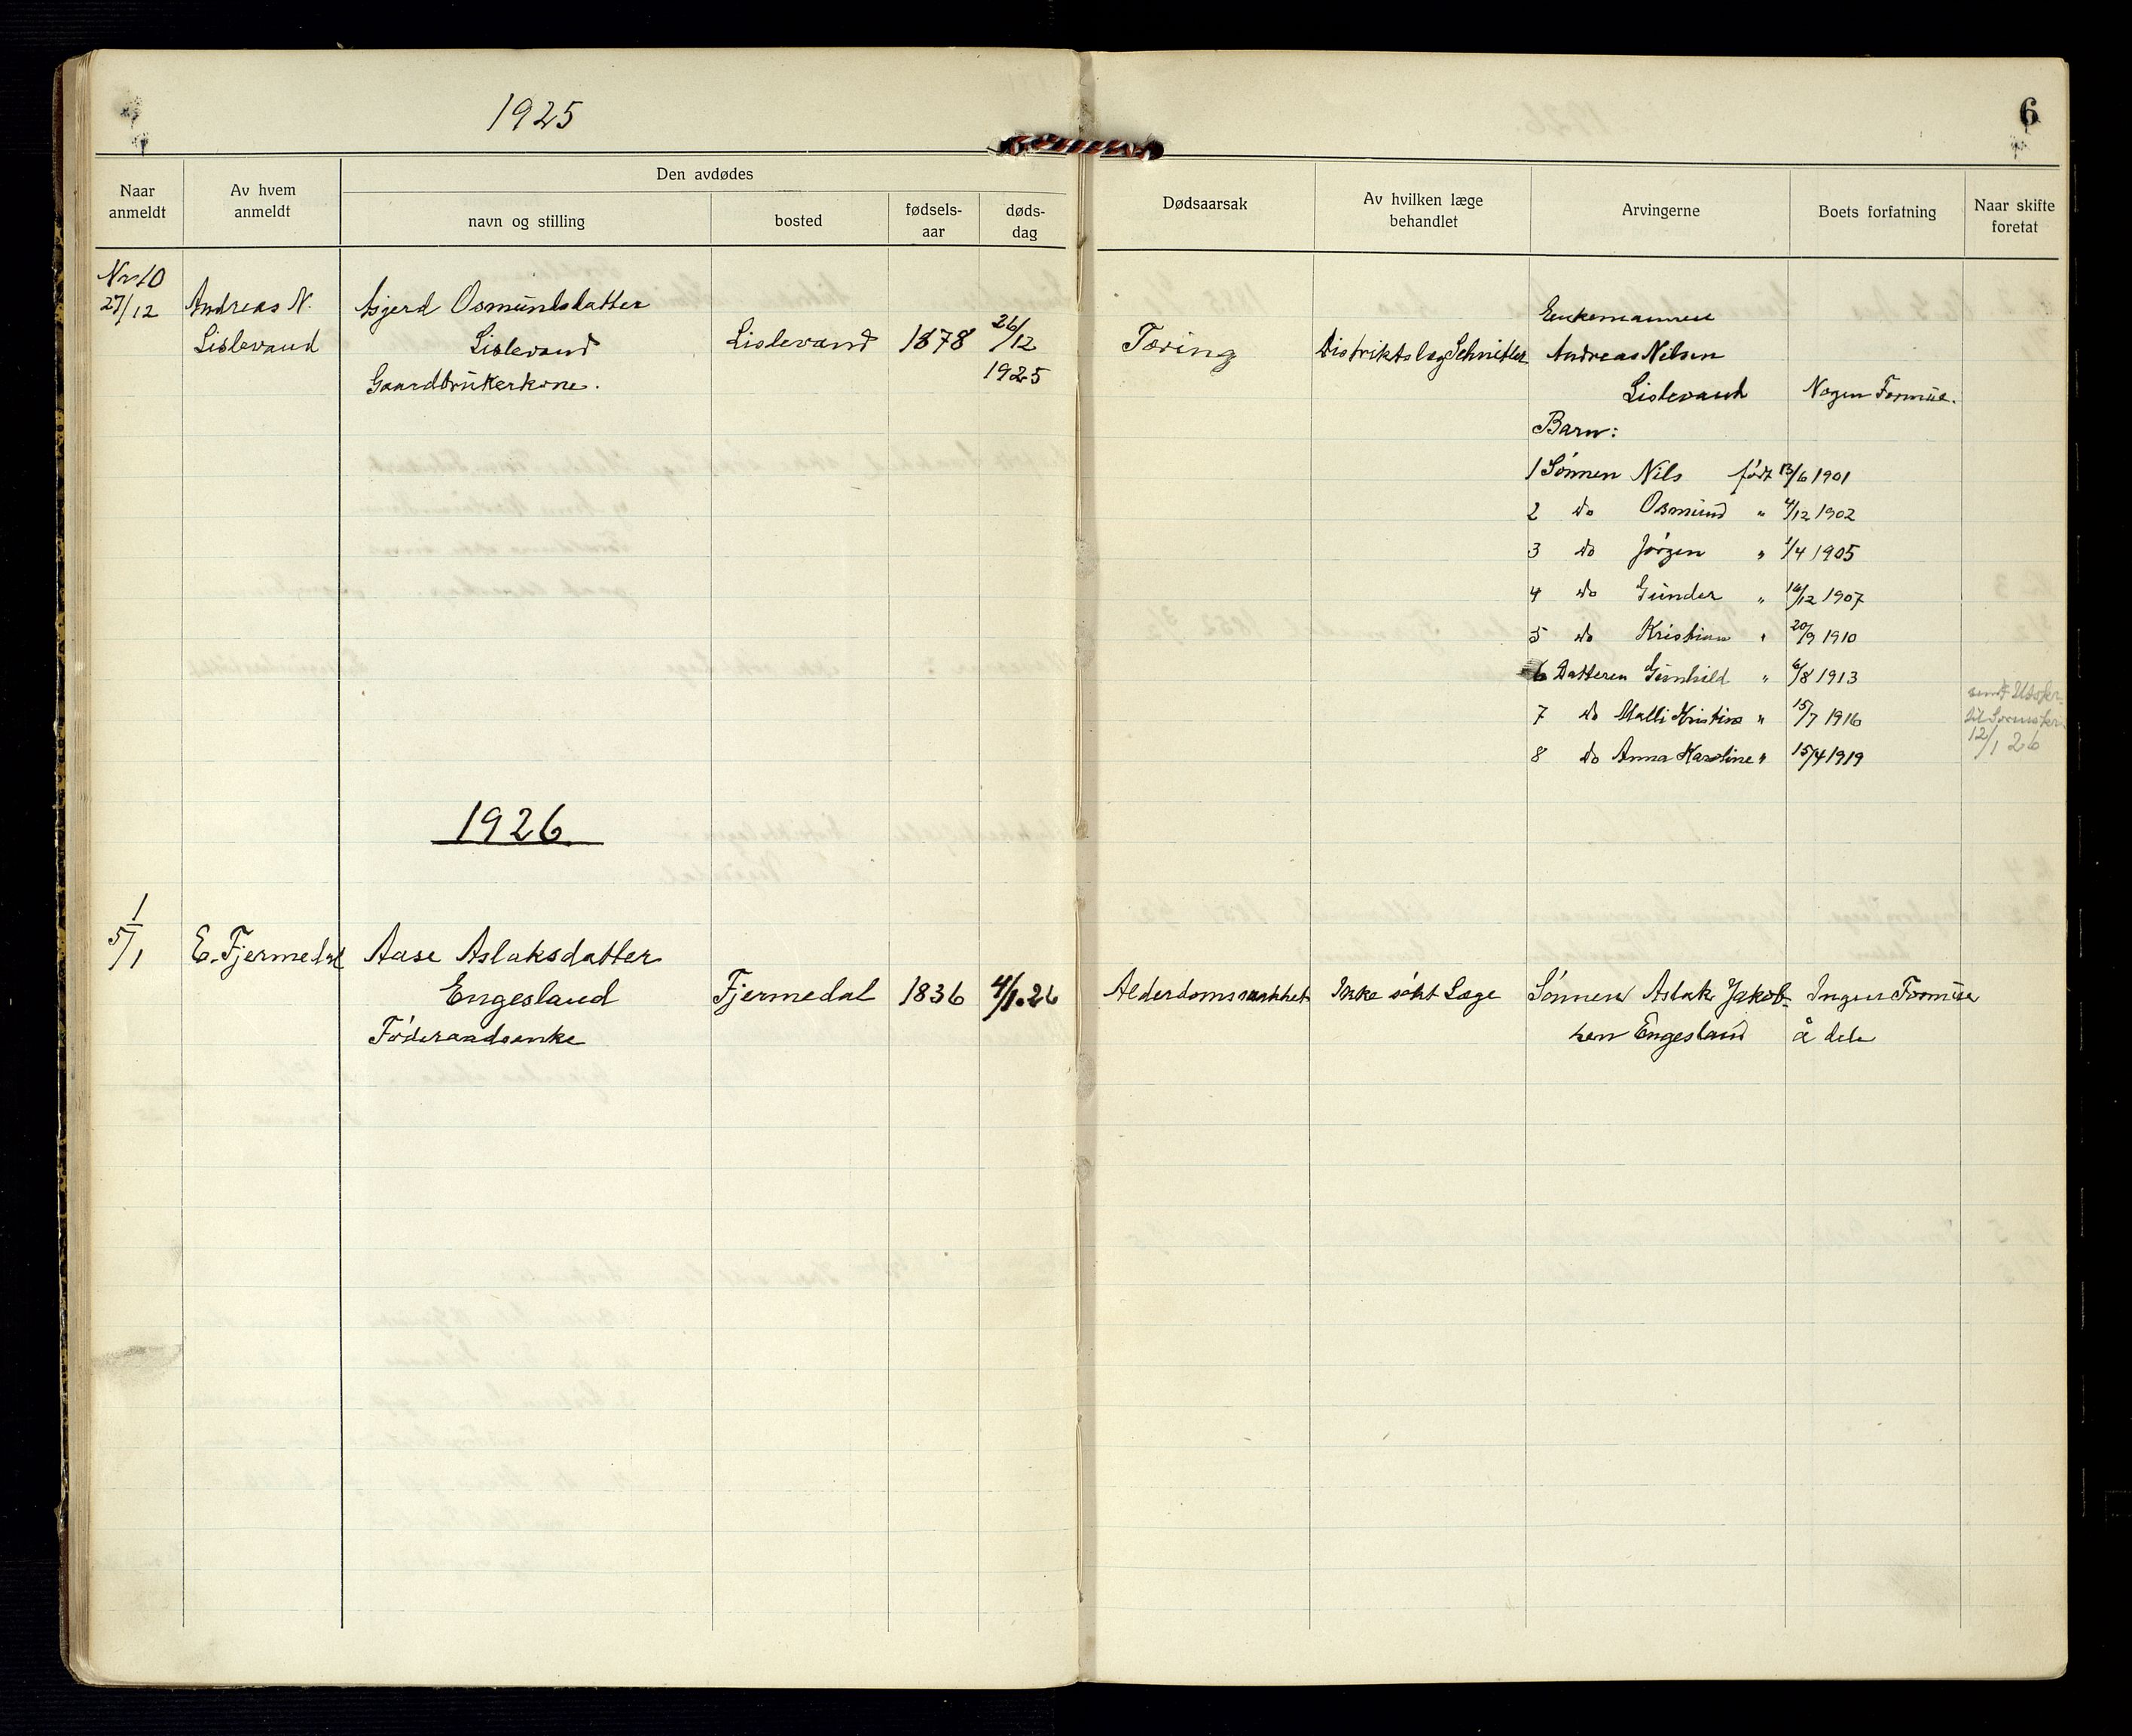 1925
6
Naar anmeldt
Av hvem anmeldt
Den avdødes
navn og stilling
bosted
fødsels-aar
døds-dag
Dødsaarsak
Av hvilken læge behandlet
Arvingerne
Boets forfatning
Naar skifte foretat
Nr 10
27/12 Andreas N. Asjerd Osmundsdatter
Lislevand Lislevand Lislevand 1878 26/12
Gaardbrukerkone. 1925
Tæring Distriktslæg Schnitler
Enkemannen
Andreas Nilsen
Lislevand Nogen Formue.
Barn:
1 Sönnen Nils født 13/6 1901
2 do Osmund " 4/12 1902
3 do Jörgen " 1/4 1905
4 do Gunder " /12 1907
5 do Kristian " 20/9 1910
6 Datteren Gunhild " 6/8 1913
7 do Malli Kristina " 15/7 1916
8 do Anna Karoline " 15/4 1919
sendt
12/1 26
1926
1
5/1 E. Fjermedal Aase Aslaksdatter
Engesland Fjermedal 1836 4/1.26 Alderdomssvakhet Ikke sökt Læge Sönnen Aslak Jakob- Ingen Formue
Föderaadsenke sen Engesland å dele